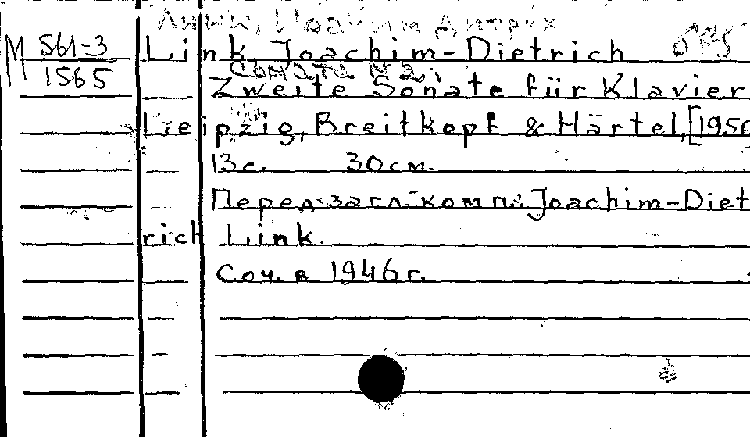 Линк, Иоахим Дитрих
М 561-3 Link, Joachim-Dietrich
1565 Соната №2.
Zweite Sonate für Klavier
Leipzig, Breitkopf & Härtel, [1950
13с. 30см.
Перед загл. комп.: Joachim-Diet
rich Link.
Соч. в 1946г.